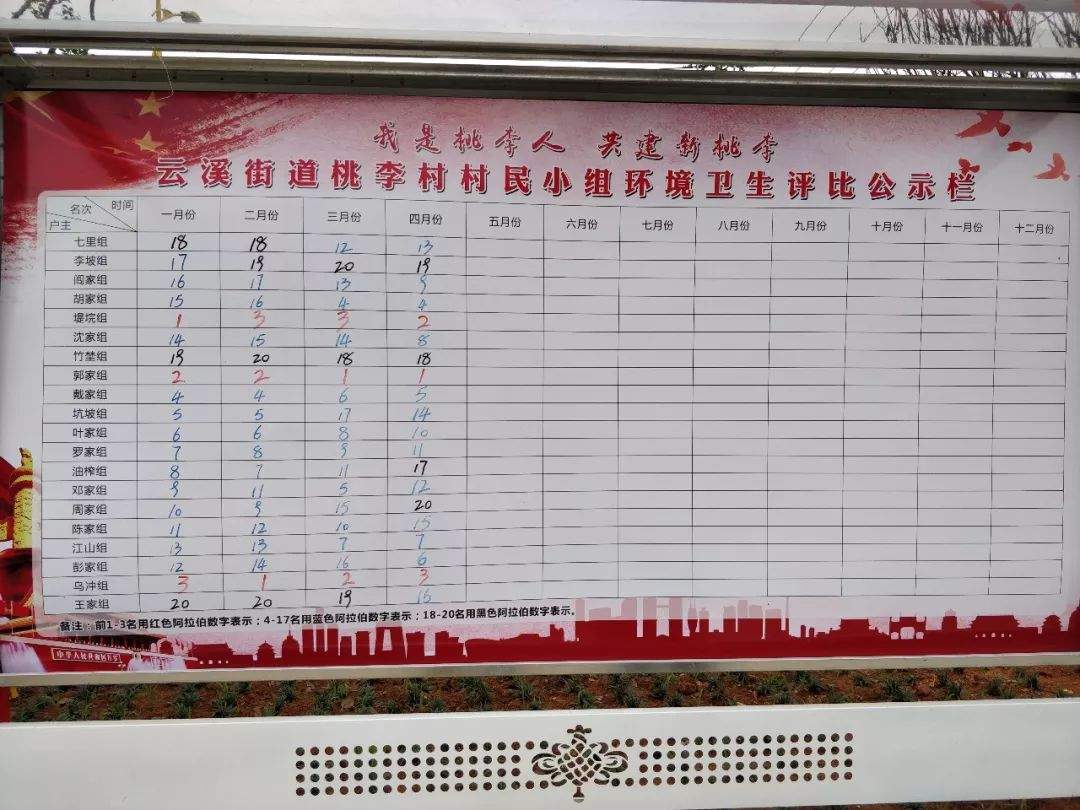 我是桃李人 共建新桃李
云溪街道桃李村村民小组环境卫生评比公示栏
名次 时间 户主 一月份 二月份 三月份 四月份 五月份 六月份 七月份 八月份 九月份 十月份 十一月份 十二月份
七里组 18 18 12 13
李坡组 17 19 20 19
阎家组 16 17 13 9
胡家组 15 16 4 4
堤垸组 1 3 3 2
沈家组 14 15 14 8
竹埜组 19 20 18 18
郭家组 2 2 1 1
戴家组 4 4 6 5
坑坡组 5 5 17 14
叶家组 6 6 8 10
罗家组 7 8 9 11
油榨组 8 7 11 17
邓家组 9 11 5 12
周家组 10 9 15 20
陈家组 11 12 10 15
江山组 13 13 7 7
彭家组 12 14 16 6
乌冲组 3 1 2 3
王家组 20 20 19 16
备注：前1-3名用红色阿拉伯数字表示；4-17名用蓝色阿拉伯数字表示；18-20名用黑色阿拉伯数字表示。